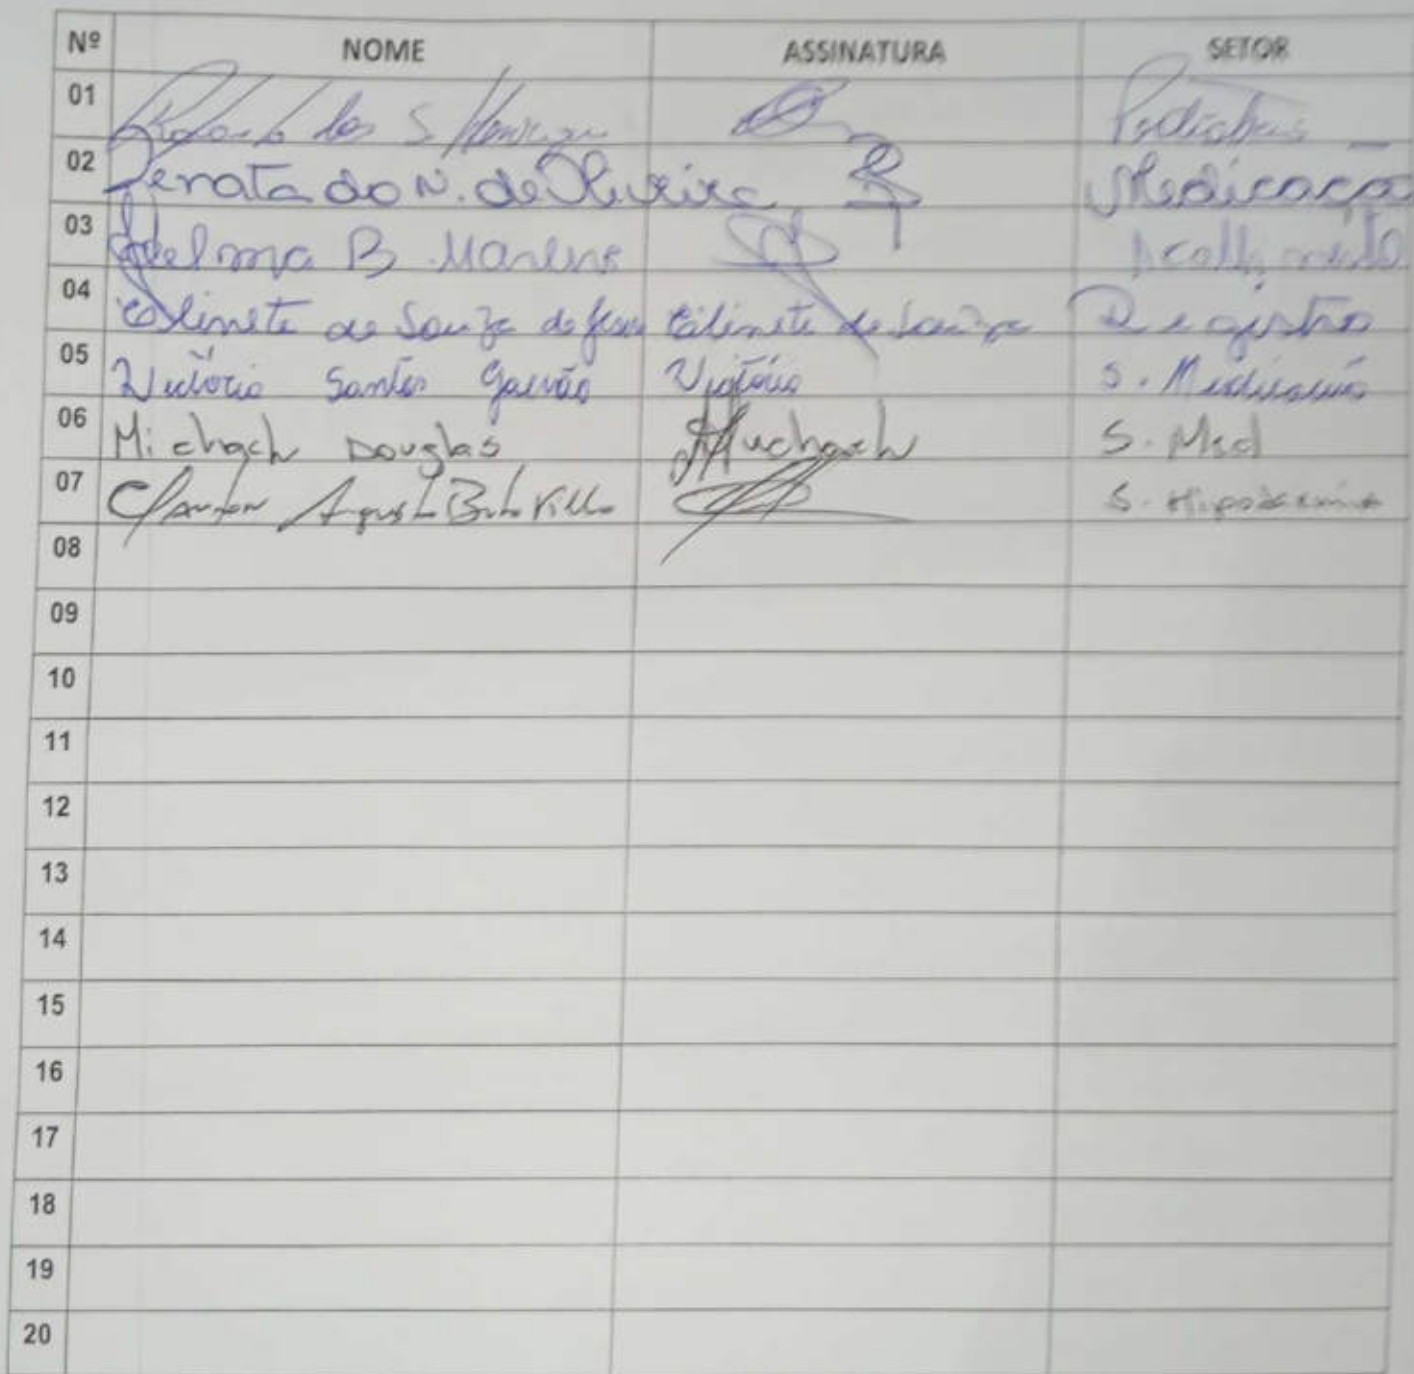 Nº NOME ASSINATURA SETOR
01 dos S Pediatria
02 Renata do N. de Oliveira Medicação
03 Edelma B Acolhimento
04 Edinete de Souza de Edinete de Souza Registro
05 Victória Santos Galvão Victória S. Medicação
06 Michach Douglas Michach S. Med
07 Augusto S. Hipodermia
08
09
10
11
12
13
14
15
16
17
18
19
20